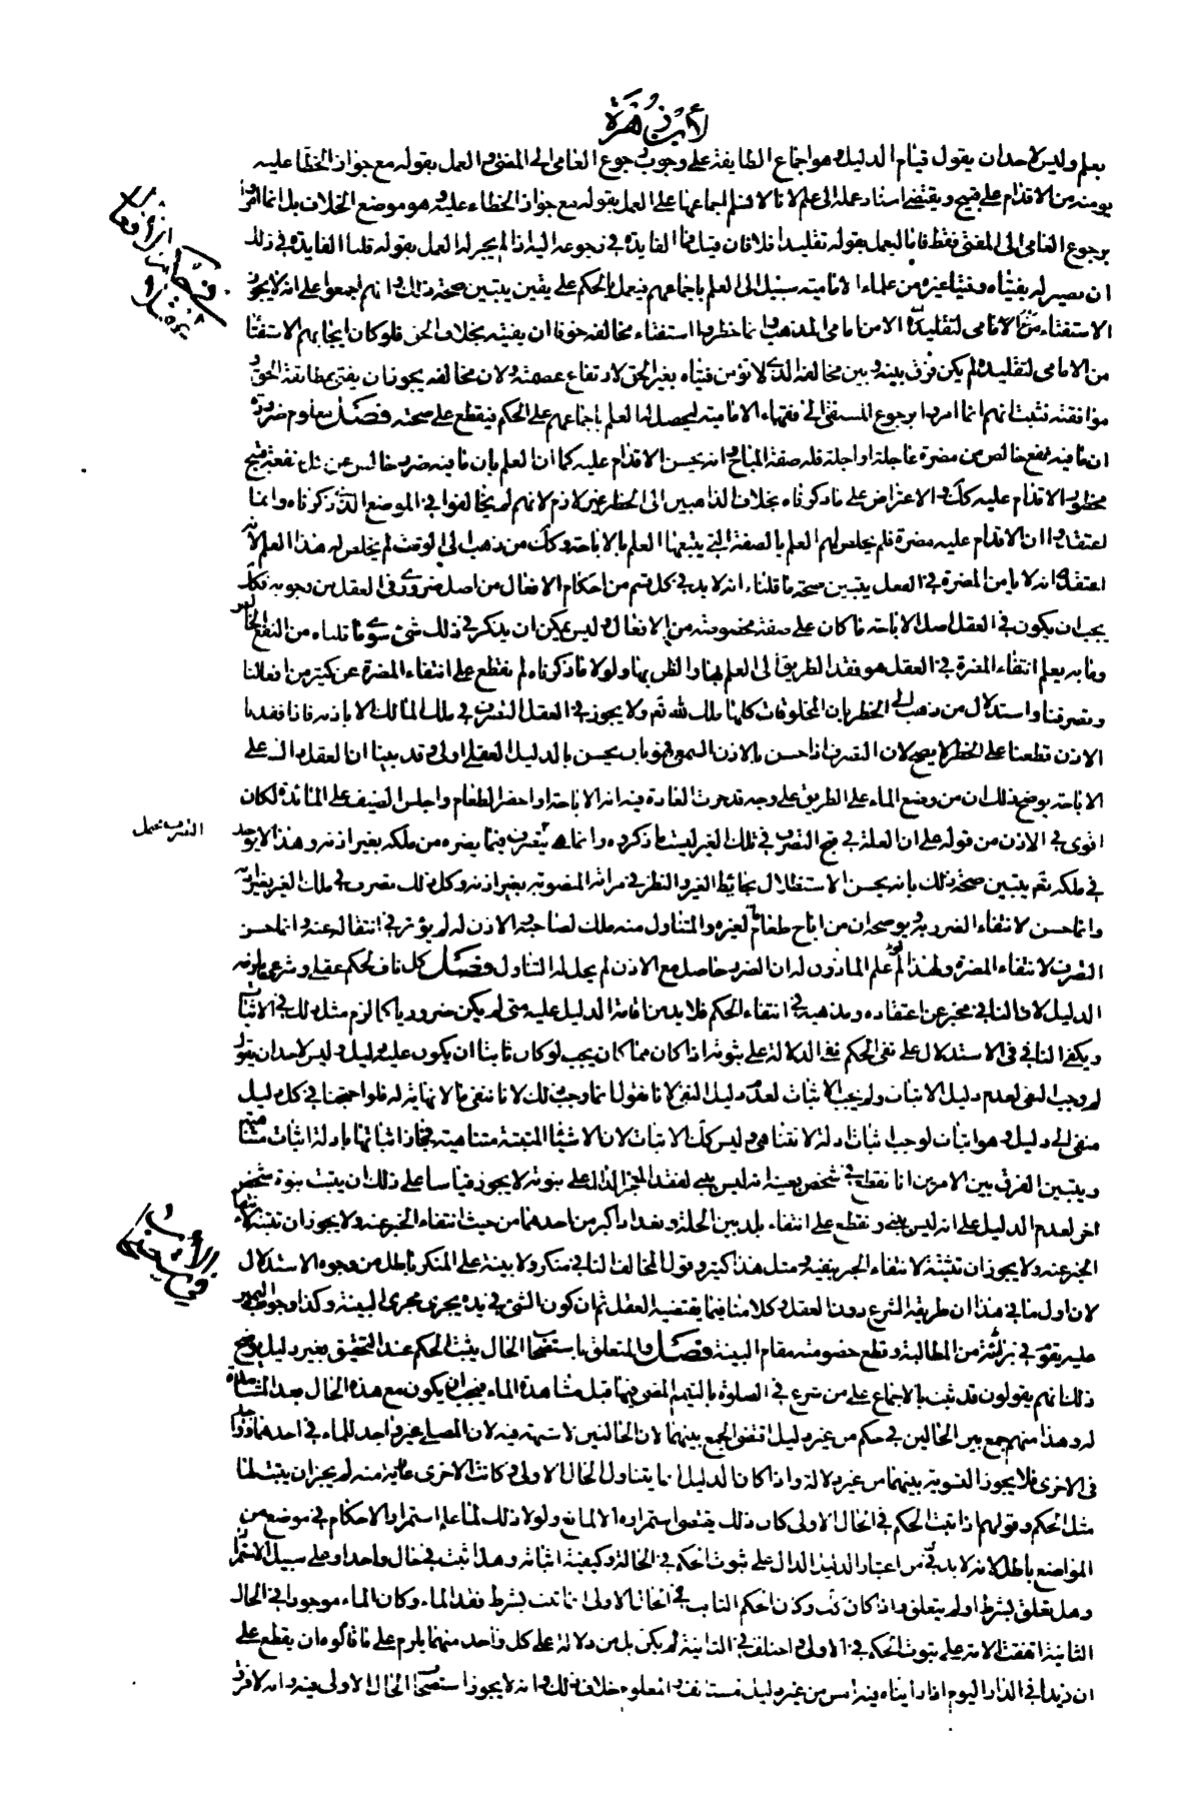 لأبن زهرة
بعلم وليس لاحد ان يقول قيام الدليل وهو اجماع الطايفة على وجوب رجوع العامي الى المفتي والعمل بقوله مع جواز الخطاء عليه
يومنه من الاقدام على قبيح ويقتضي اسناد عمله الى علم لانا لا نسلم اجماعها على العمل بقوله مع جواز الخطاء عليه وهو موضع الخلاف بل انما امروا
برجوع العامي الى المفتي فقط فاما العمل بقوله تقليدا فلا فان قيل فما الفايدة في رجوعه اليه اذا لم يجز له العمل بقوله قلنا الفايدة في ذلك
ان يصير له بفتياه وفتيا غيره من علماء الامامية سبيل الى العلم باجماعهم فيعمل بالحكم على يقين يتبين صحة ذلك انهم اجمعوا على انه لا يجوز
الاستفتاء من الامامي لتقليده الا من امامي المذهب وانما حظروا استفتاء مخالفه خوفا ان يفتيه بخلاف الحق فلو كان ايجابهم الاستفتاء
من الامامي لتقليده لم يكن فرق بينه وبين مخالفه الذي لا تؤمن فتياه بغير الحق لارتفاع عصمته ولان مخالفه يجوز ان يفتي بمطابقة الحق و
موافقته فثبت انهم انما امروا برجوع المستفتي الى فقهاء الامامية ليحصل له العلم باجماعهم على الحكم فيقطع على صحته فصل معلوم ضرورة
ان ما فيه نفع خالص من مضرة عاجلة او اجلة فله صفة المباح وانه يحسن الاقدام عليه كما ان العلم بان ما فيه ضرر خالص عن كل نفع قبيح
محظور الاقدام عليه كك والاعتراض على ما ذكرناه بخلاف الذاهبين الى الحظر غير لازم لانهم لم يخالفوا في الموضع الذي ذكرناه وانما
اعتقدوا ان الاقدام عليه مضرة فلم يخلص لهم العلم بالصفة التي يتبعها العلم بالاباحة وكك من ذهب الى الوقف لم يخلص له هذا العلم لانه
اعتقد انه لا يامن المضرة في الفعل يتبين صحة ما قلناه انه لابد في كل قسم من احكام الافعال من اصل ضروري في العقل من وجوبه فكك
يجب ان يكون في العقل اصل الاباحة ما كان على صفة مخصوصة من الافعال وليس يمكن ان يذكر في ذلك شئ سوى ما قلناه من النفع الخالص
وما به يعلم انتفاء المضرة في العقل هو فقد الطريق الى العلم بها والظن بها ولولا ما ذكرناه لم نقطع على انتفاء المضرة عن كثير من افعالنا
وتصرفنا واستدلال من ذهب الى الحظر بان المخلوقات كلها ملك لله تع ولا يجوز في العقل التصرف في ملك المالك الا باذنه فاذا فقدنا
الاذن قطعنا على الحظر لا يصح لان التصرف اذا حسن بالاذن السمعي فهو بان يحسن بالدليل العقلي اولى وقد بينا ان العقل دال على
الاباحة يوضح ذلك ان من وضع الماء على الطريق على وجه قد جرت العادة فيه انه الاباحة او احضر الطعام واجلس الضيف على المائدة لكان
اقوى في الاذن من قوله على ان العلة في قبح التصرف في ملك الغير ليست ما ذكروه وانما هي تصرف فيما يضره من ملكه بغير اذنه وهذا لا يوجد
في ملكه تع يتبين صحة ذلك بانه يحسن الاستظلال بحائط الغير والنظر في مراته المنصوبة بغير اذنه وكل ذلك تصرف في ملك الغير بغير اذنه
وانما حسن لانتفاء الضرر به يوضحه ان من اباح طعامه لغيره والمتناول منه ملك لصاحبه والاذن له لم يؤثر في انتقاله عنه وانما حسن
التصرف لانتفاء المضرة ولهذا لو علم الماذون له ان الضرر حاصل مع الاذن لم يحل له التناول فصل كل ناف لحكم عقلي وشرعي يلزمه
الدليل لان النافي مخبر عن اعتقاده ومذهبه في انتفاء الحكم فلا بد من اقامة الدليل عليه متى لم يكن ضروريا كما لزم مثل ذلك في الاثبات
ويكفي النافي في الاستدلال على نفي الحكم نفي الدلالة على ثبوته اذا كان مما كان يجب لو كان ثابتا ان يكون عليه دليل وليس لاحد ان يقول
لم وجب النفي لعدم دليل الاثبات ولم يجب الاثبات لعدم دليل النفي لانا نقول انما وجب ذلك لانا ننفي ما لا نهاية له فلو احتجنا في كل دليل
منفي الى دليل وهو اثبات لوجب اثبات دلة لا تتناهى وليس كك الاثبات لان الاشياء المثبتة متناهية فجاز اثباتها بادلة اثبات متناهية
ويتبين الفرق بين الامرين انا نقطع في شخص بعينه انه ليس بنبي لفقد المعجز الدال على نبوته لا يجوز قياسا على ذلك ان يثبت نبوة شخص
اخر لعدم الدليل على انه ليس بنبي ونقطع على انتفاء بلد بين الحلة وبغداد اكبر من احدهما من حيث انتفاء الخبر عنه ولا يجوز ان نثبته لانتفاء
المخبر عنه ولا يجوز ان نثبته لانتفاء الخبر بنفيه ومثل هذا كثير وقول المخالف النافي منكر ولا بينة على المنكر باطل من وجوه الاستدلال
لان اول ما في هذا ان طريقه الشرع دون العقل وكلامنا فيما يقتضيه العقل ثم ان كون الشئ في يده يجري مجرى البينة وكذا وجوب اليمين
عليه يقوى في تبرئته من المطالبة وقطع خصومته مقام البينة فصل والمتعلق باستصحاب الحال يثبت الحكم عند التحقيق بغير دليل يوضح
ذلك انهم يقولون قد ثبت بالاجماع على من شرع في الصلوة بالتيمم المضي فيها قبل مشاهدة الماء فيجب ان يكون مع هذه الحال بعد المشاهدة
له وهذا منهم جمع بين الحالين في حكم من غير دليل اقتضى الجمع بينهما لان الحالتين لا شبهة فيه لان المصلي غير واجد للماء في احدهما وواجد له
في الاخرى فلا يجوز التسوية بينهما من غير دلالة واذا كان الدليل انما يتناول الحال الاولى وكانت الاخرى عارية منه لم يجز ان يثبت لها
مثل الحكم وقولهم اذا ثبت الحكم في الحال الاولى كان ذلك يقتضي استمراره الا لمانع ولولا ذلك لما علم استمرار الاحكام في موضع من
المواضع باطل لانه لابد في من اعتبار الدليل الدال على ثبوت الحكم في الحالة وكيفية اثباته وهل ثبت في حال واحد او على سبيل الاستمرار
وهل تعلق بشرط اولم يتعلق واذا كان كذلك وكان الحكم الثابت في الحال الاولى انما ثبت بشرط فقد الماء وكان الماء موجودا في الحال
الثانية اتفقت الامة على ثبوت الحكم في الاولى واختلف في الثانية لم يكن بد من دلالة على كل واحد منهما يلزم على ما قالوه ان يقطع على
ان زيدا في الدار اليوم اذا رايناه فيه امس من غير دليل مستانف والمعلوم خلاف ذلك وانه لا يجوز استصحاب الحال الاولى فيه وانه لا فرق
التصرف يحمل